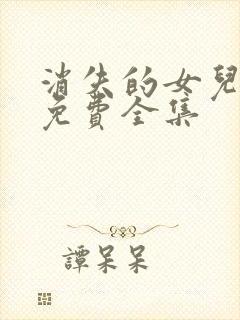 消失的女兒
免費全集
譚呆呆